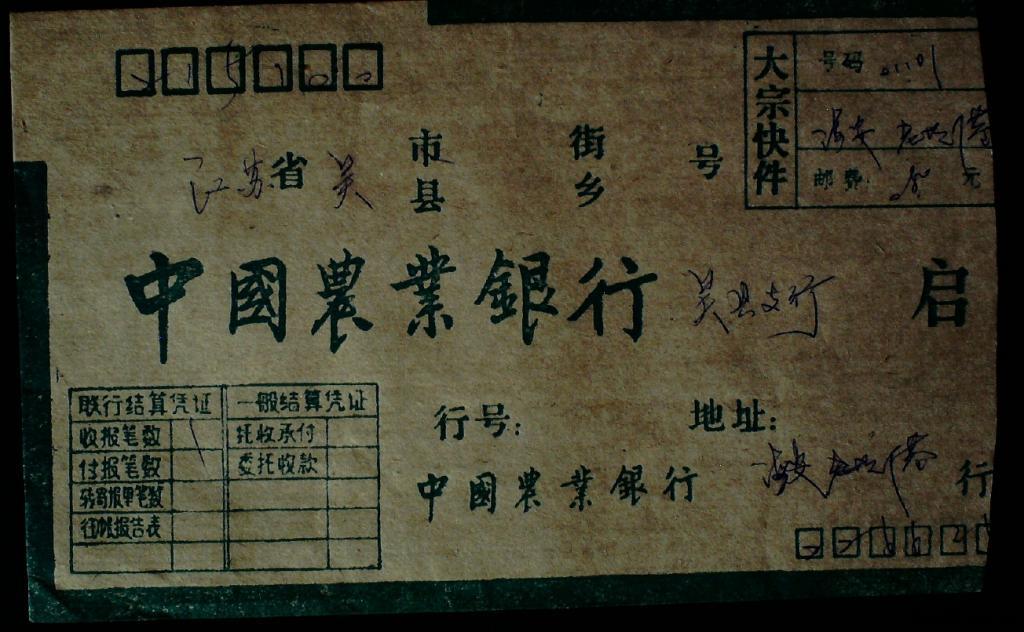 215100
大宗快件
号码 01101
海安
邮费: 元
江苏省 吴 市县 街乡 号
中國農業銀行 吴县支行 启
联行结算凭证 一般结算凭证
收报笔数 1 托收承付
付报笔数 委托收款
转寄报单笔数
往帐报告表
行号: 地址:
中國農業銀行 海安 行